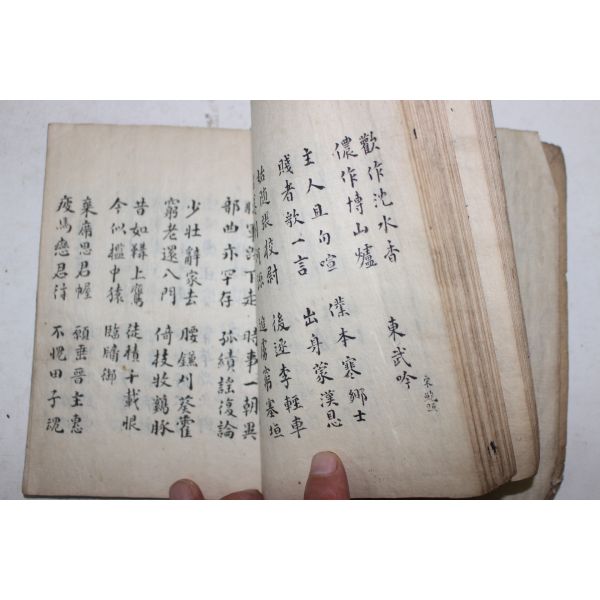 歡作沈水香
儂作博山爐
東武吟 宋鮑照
主人且勿喧 僕本寒鄉士
賤者歌一言 出身蒙漢恩
始隨張校尉 後逐李輕車
追虜窮塞垣
下走 時事一朝異
部曲亦罕存 孤績誰復論
少壯辭家去 腰鎌刈葵藿
窮老還入門 倚杖牧鷄豚
昔如韝上鷹 徒積千載恨
今似檻中猿
棄席思君幄 願垂晉主惠
疲馬戀君 不愧田子魂